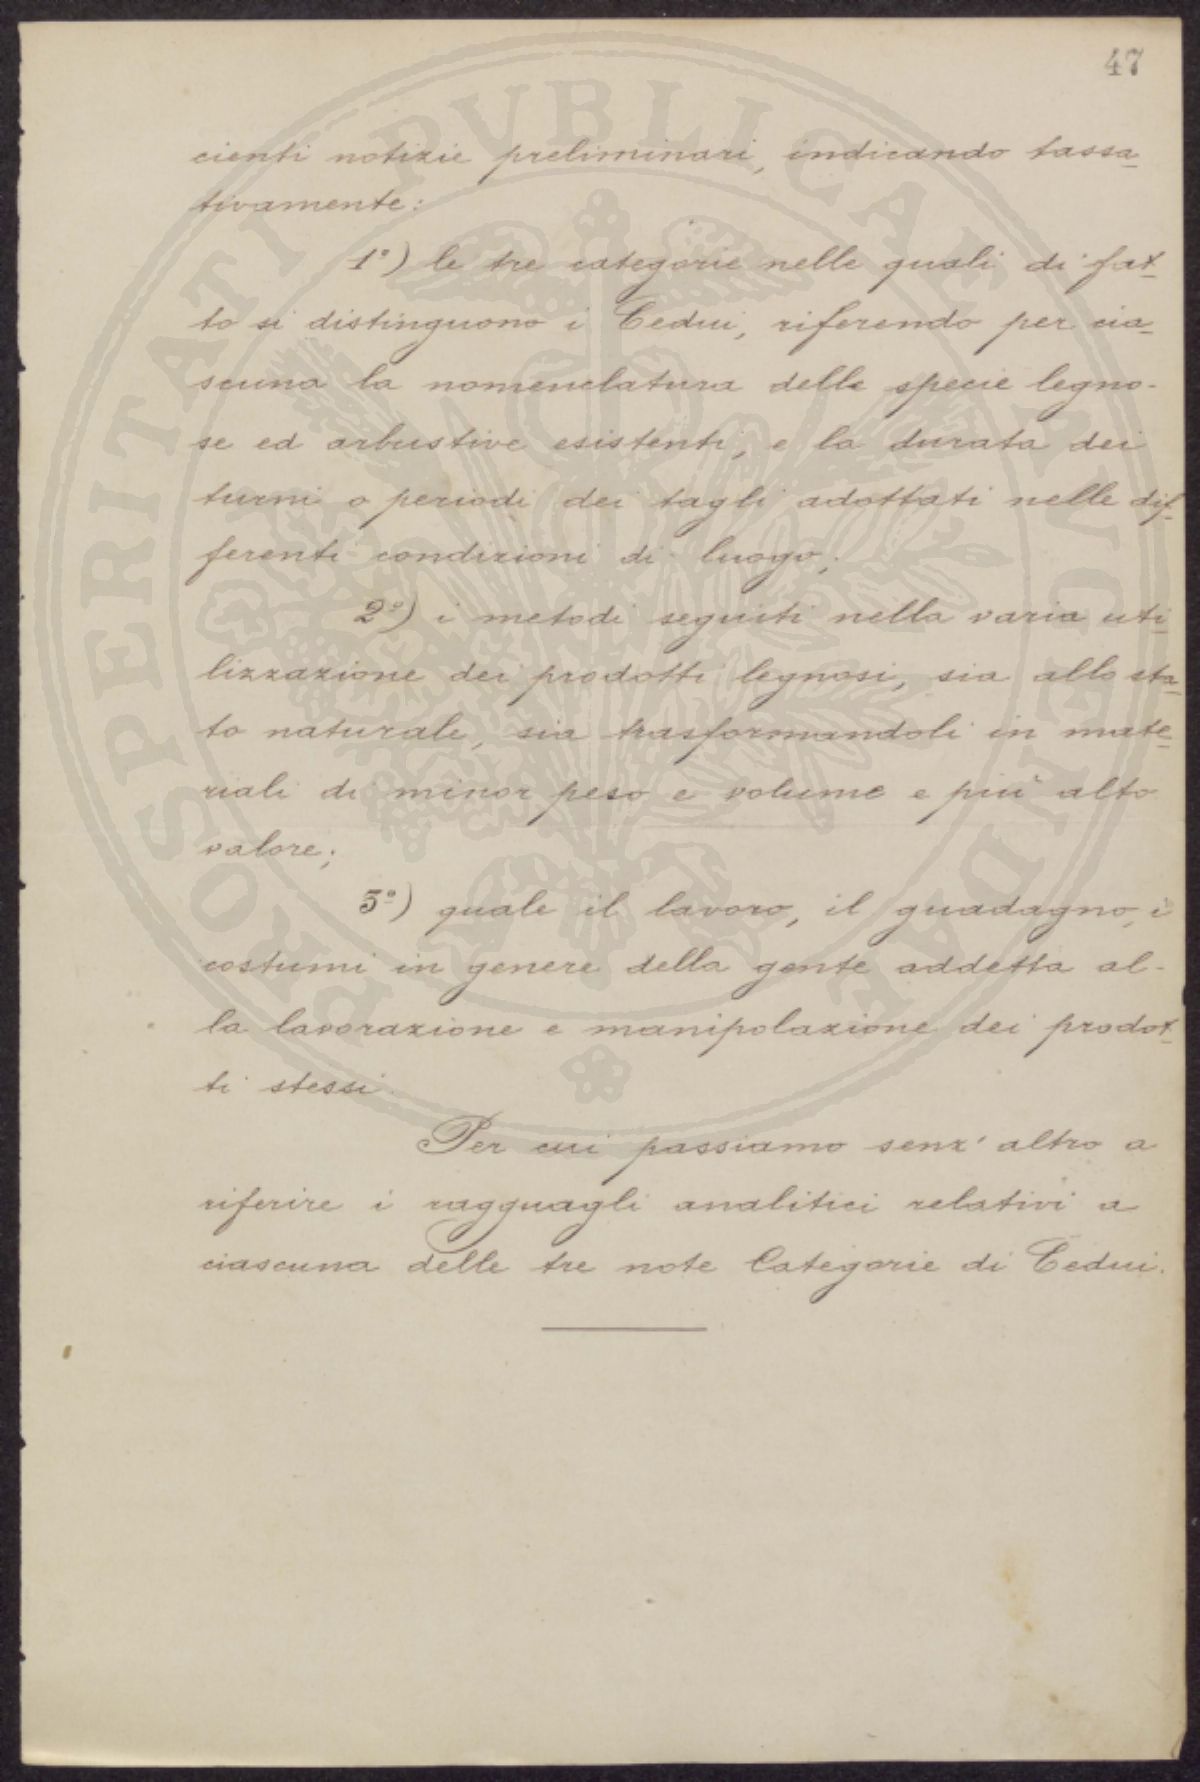 47
cienti notizie preliminari, indicando tassa-
tivamente:
1º) le tre categorie nelle quali di fat-
to si distinguono i Cedui, riferendo per cia-
scuna la nomenclatura delle specie legno-
se ed arbustive esistenti, e la durata dei
turni o periodi dei tagli adottati nelle dif-
ferenti condizioni di luogo;
2º) i metodi seguiti nella varia uti-
lizzazione dei prodotti legnosi, sia allo sta-
to naturale, sia trasformandoli in mate-
riali di minor peso e volume e più alto
valore;
3º) quale il lavoro, il guadagno, i
costumi in genere della gente addetta al-
la lavorazione e manipolazione dei prodot-
ti stessi.
Per cui passiamo senz'altro a
riferire i ragguagli analitici relativi a
ciascuna delle tre note Categorie di Cedui.
PUBLICAE AVICENDA PROSPERITATI